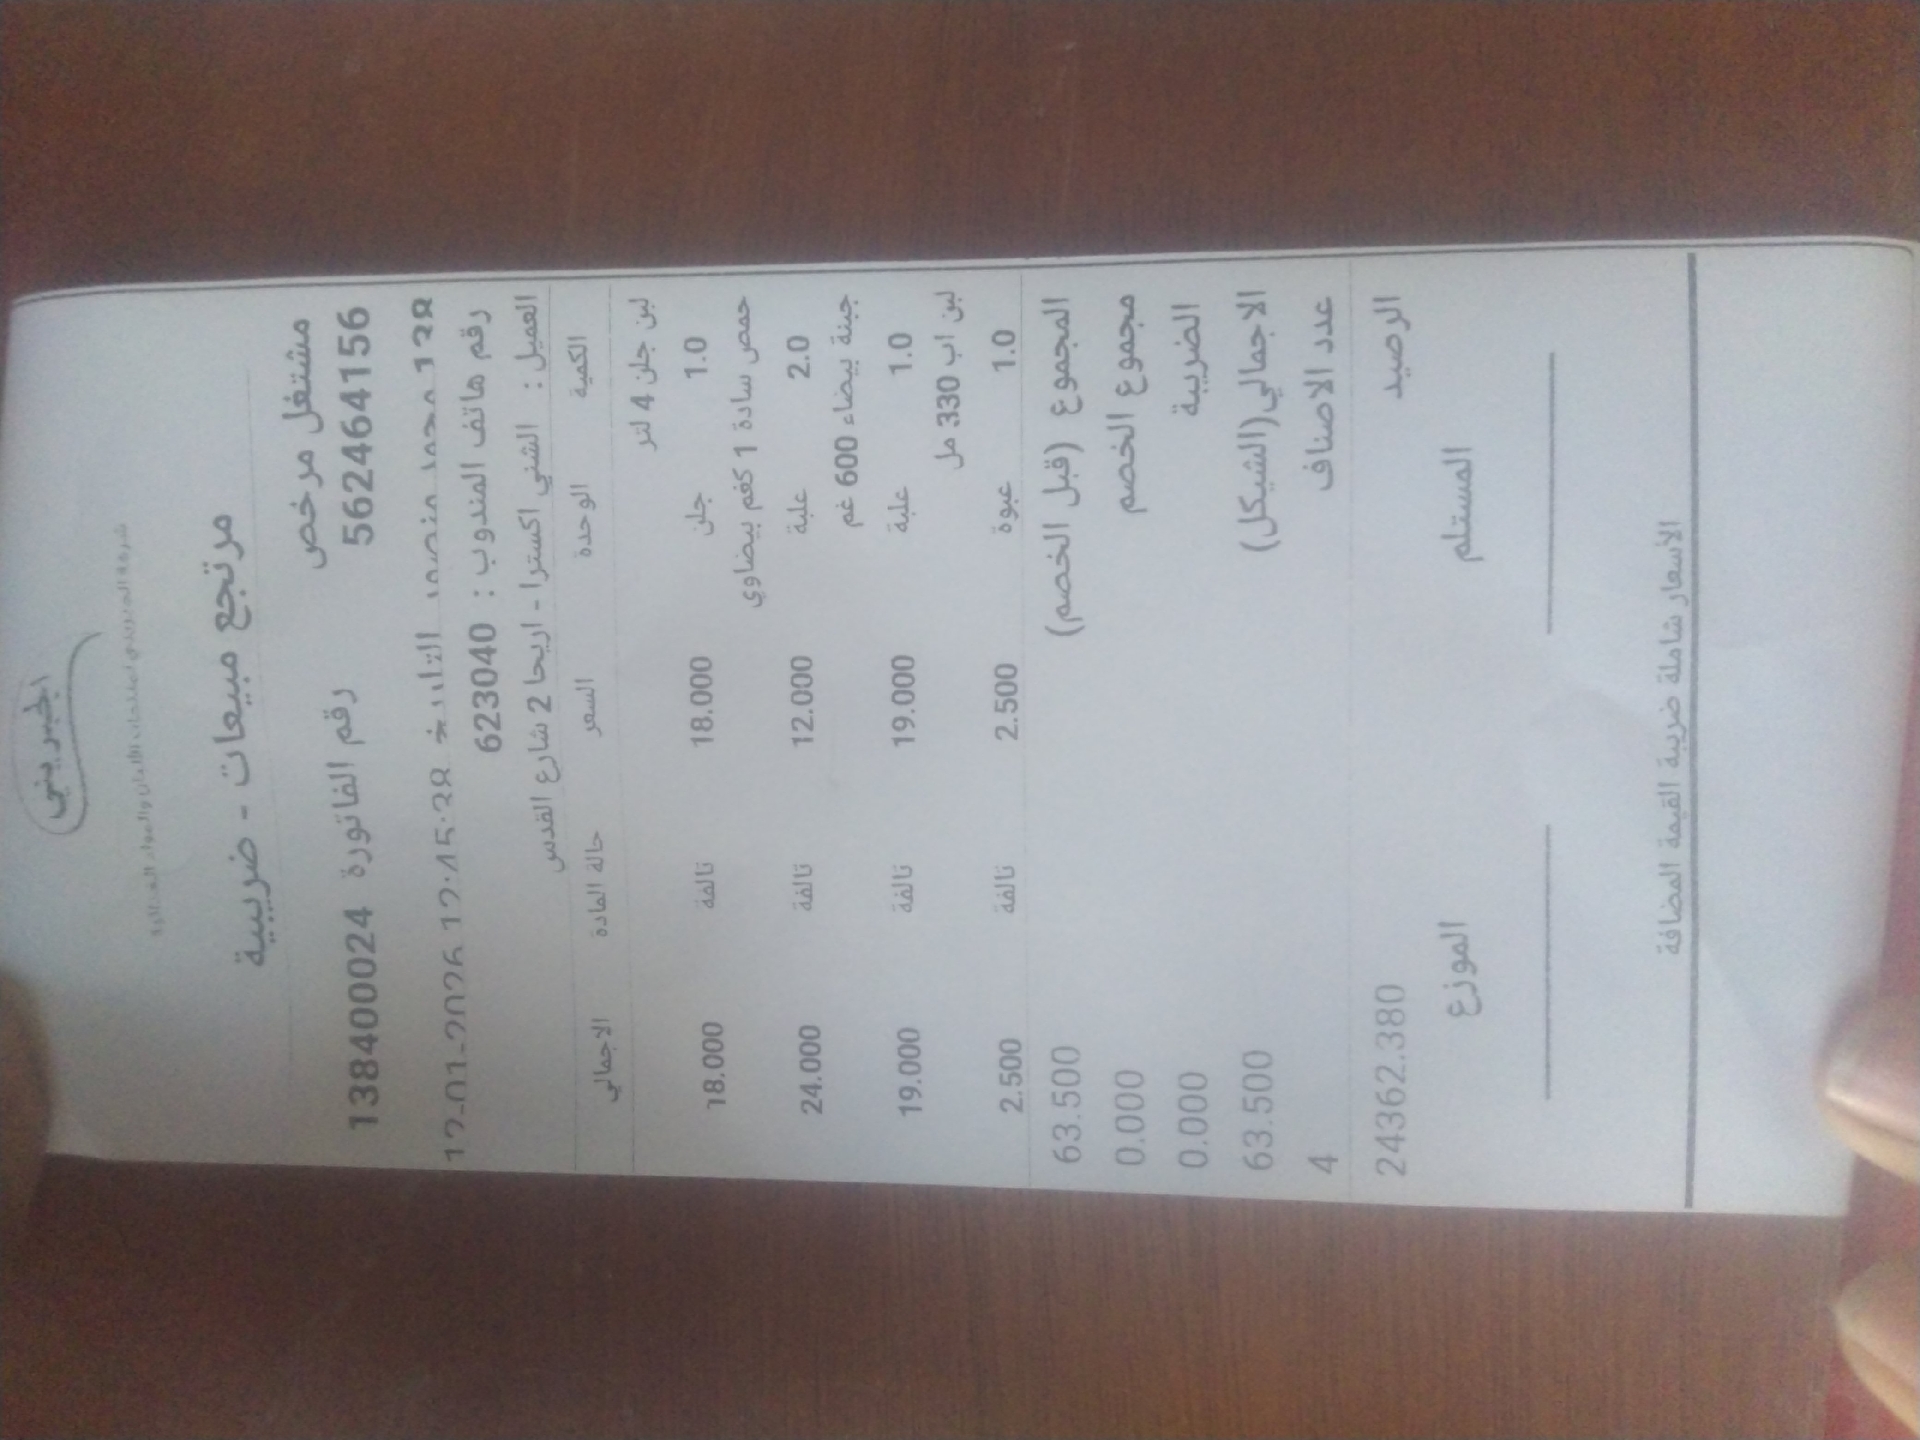 الجبريني
مرتجع مبيعات - ضريبية
مشتغل مرخص
562464156 رقم الفاتورة 138400024
138 محمد منصور التاريخ 12-01-2026 12:45:28
رقم هاتف المندوب : 623040
العميل : الشني اكسترا - اريحا 2 شارع القدس
الكمية الوحدة السعر حالة المادة الاجمالي
لبن جلن 4 لتر
1.0 جلن 18.000 تالفة 18.000
حمص سادة 1 كغم بيضاوي
2.0 علبة 12.000 تالفة 24.000
جبنة بيضاء 600 غم
1.0 علبة 19.000 تالفة 19.000
لبن اب 330 مل
1.0 عبوة 2.500 تالفة 2.500
المجموع (قبل الخصم) 63.500
مجموع الخصم 0.000
الضريبة 0.000
الاجمالي(الشيكل) 63.500
عدد الاصناف 4
الرصيد 24362.380
المستلم الموزع
الأسعار شاملة ضريبة القيمة المضافة